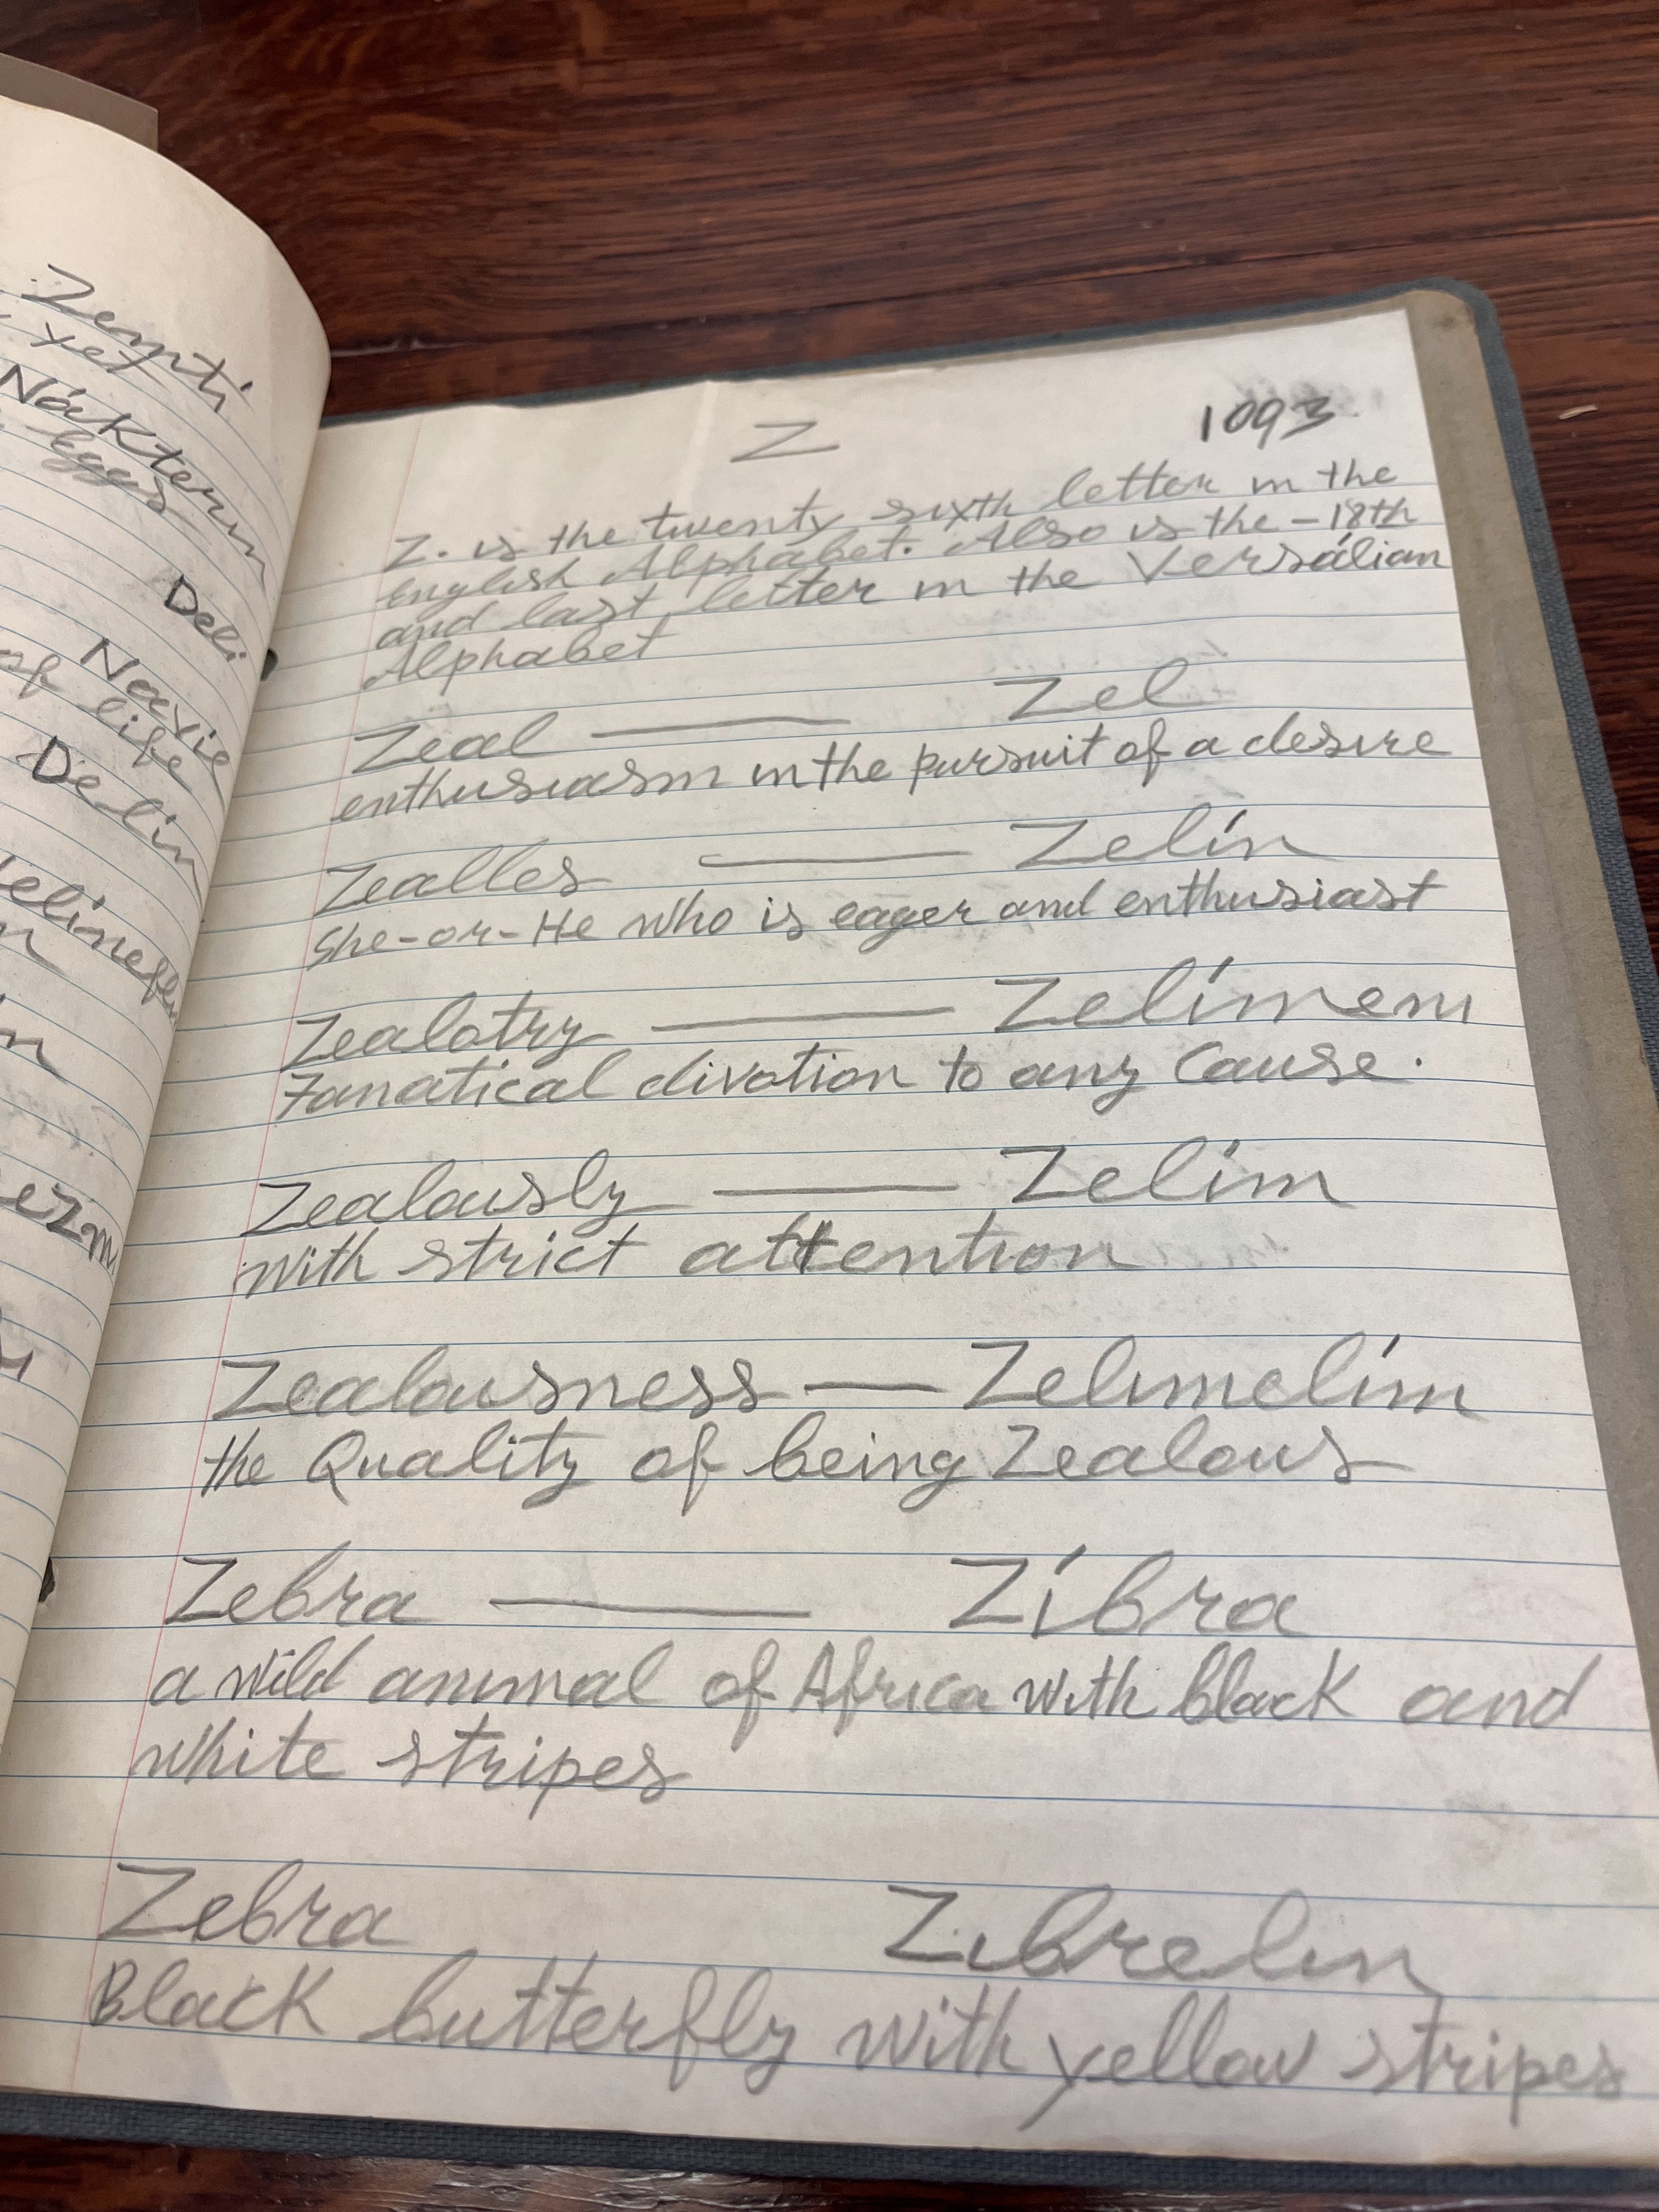 Zempti
xex
Nákterin
Eggs
Deli
Naxie
of life
Delin
Z
1093
Z. is the twenty sixth letter in the
English Alphabet. Also is the - 18th
and last letter in the Versálian
Alphabet
Zeal — Zel
enthusiasm in the pursuit of a desire
Zealles — Zelín
She-or-He who is eager and enthusiast
Zealotry — Zelímeni
Fanatical divotion to any Cause.
Zealously — Zelím
with strict attention
Zealousness — Zelimelím
the Quality of being Zealous
Zebra — Zíbra
a wild animal of Africa with black and
white stripes
Zebra Zibrelin
Black butterfly with yellow stripes